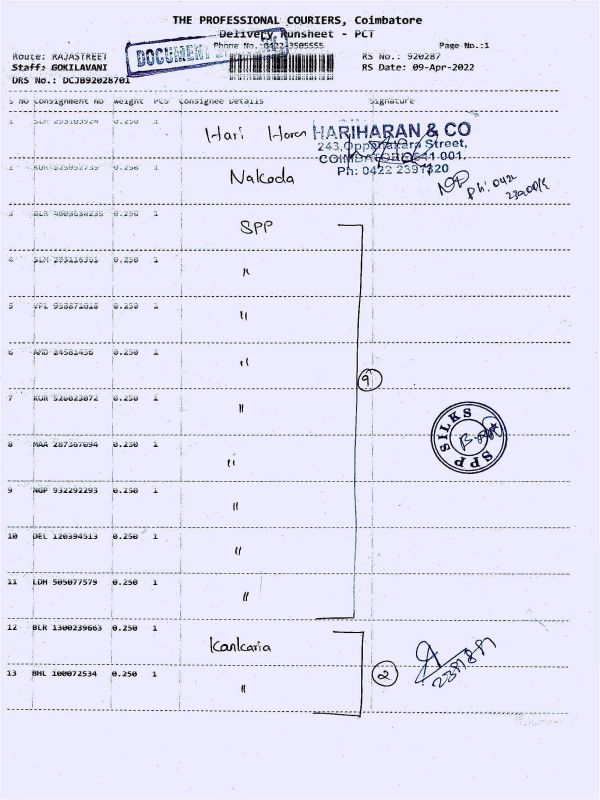 THE PROFESSIONAL COURIERS, Coimbatore
Delivery Runsheet - PCT
Phone No.:0422-3505555 Page No.:1
Route: RAJASTREET RS No.: 920287
Staff: GOKILAVANI RS Date: 09-Apr-2022
DRS No.: DCJB92028701
DOCUMENT
S No Consignment No Weight PCS Consignee Details Signature
1 0.250 1 Hari Haran
HARIHARAN & CO
243, Oppanakara Street,
COIMBATORE-641 001.
Ph: 0422 2397320
2 0.250 1 Nakoda
Ph: 0422
3 0.250 1 SPP
4 SLM 0.250 1 "
5 VPL 0.250 1 "
6 AMD 24581436 0.250 1 "
9
7 KUR 526023072 0.250 1 "
SPP SILKS
8 MAA 287367094 0.250 1 "
9 NGP 932292293 0.250 1 "
10 DEL 120394513 0.250 1 "
11 LDH 505077579 0.250 1 "
12 BLR 1300239663 0.250 1 Kankaria
2
13 BHL 100072534 0.250 1 "